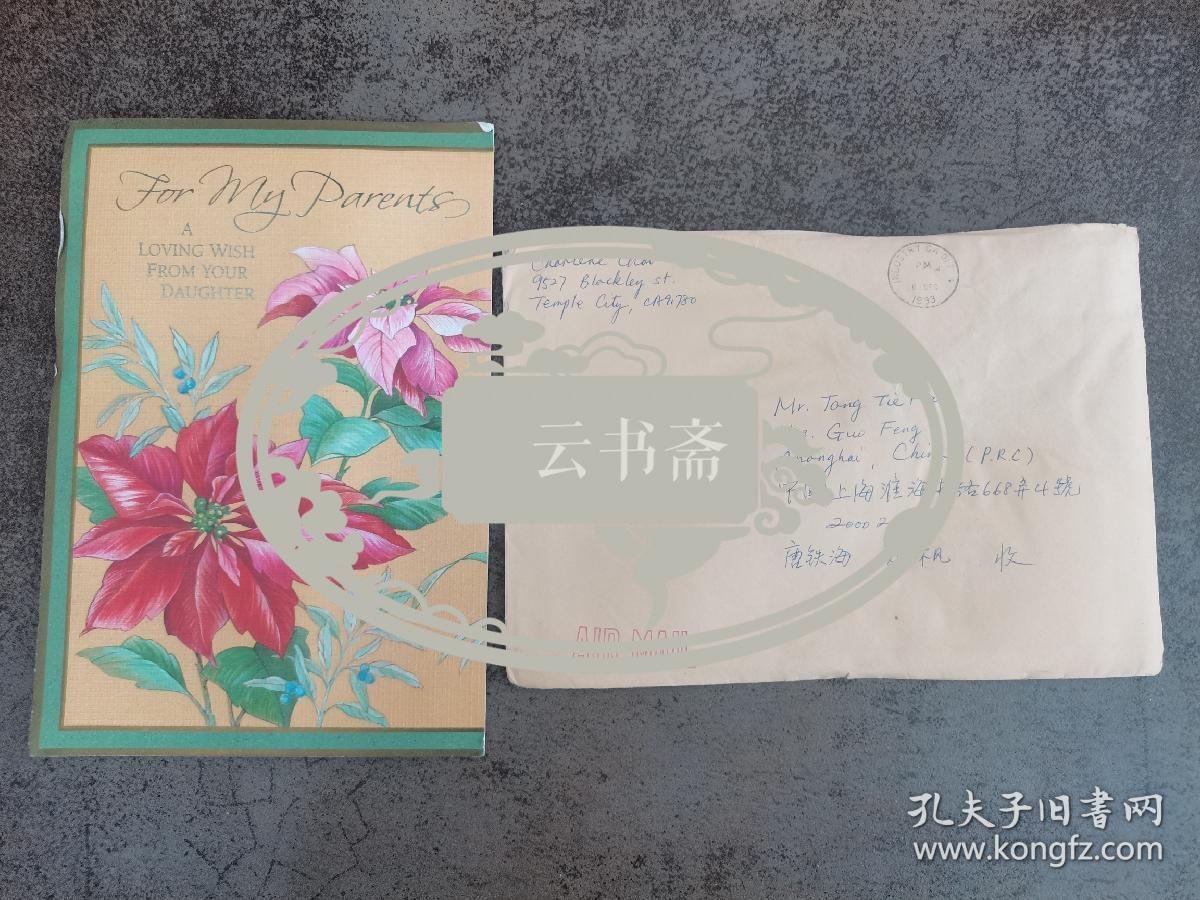 For My Parents
A
LOVING WISH
FROM YOUR
DAUGHTER
Charlene
9527 Blackley st.
Temple City, CA91780
PM
1993
Mr. Tang Tie
Guo Feng
Shanghai, China (P.R.C)
上海淮海中路668弄4號
20002
唐铁海 帆 收
AIR MAIL
云书斋
孔夫子旧书网
www.kongfz.com